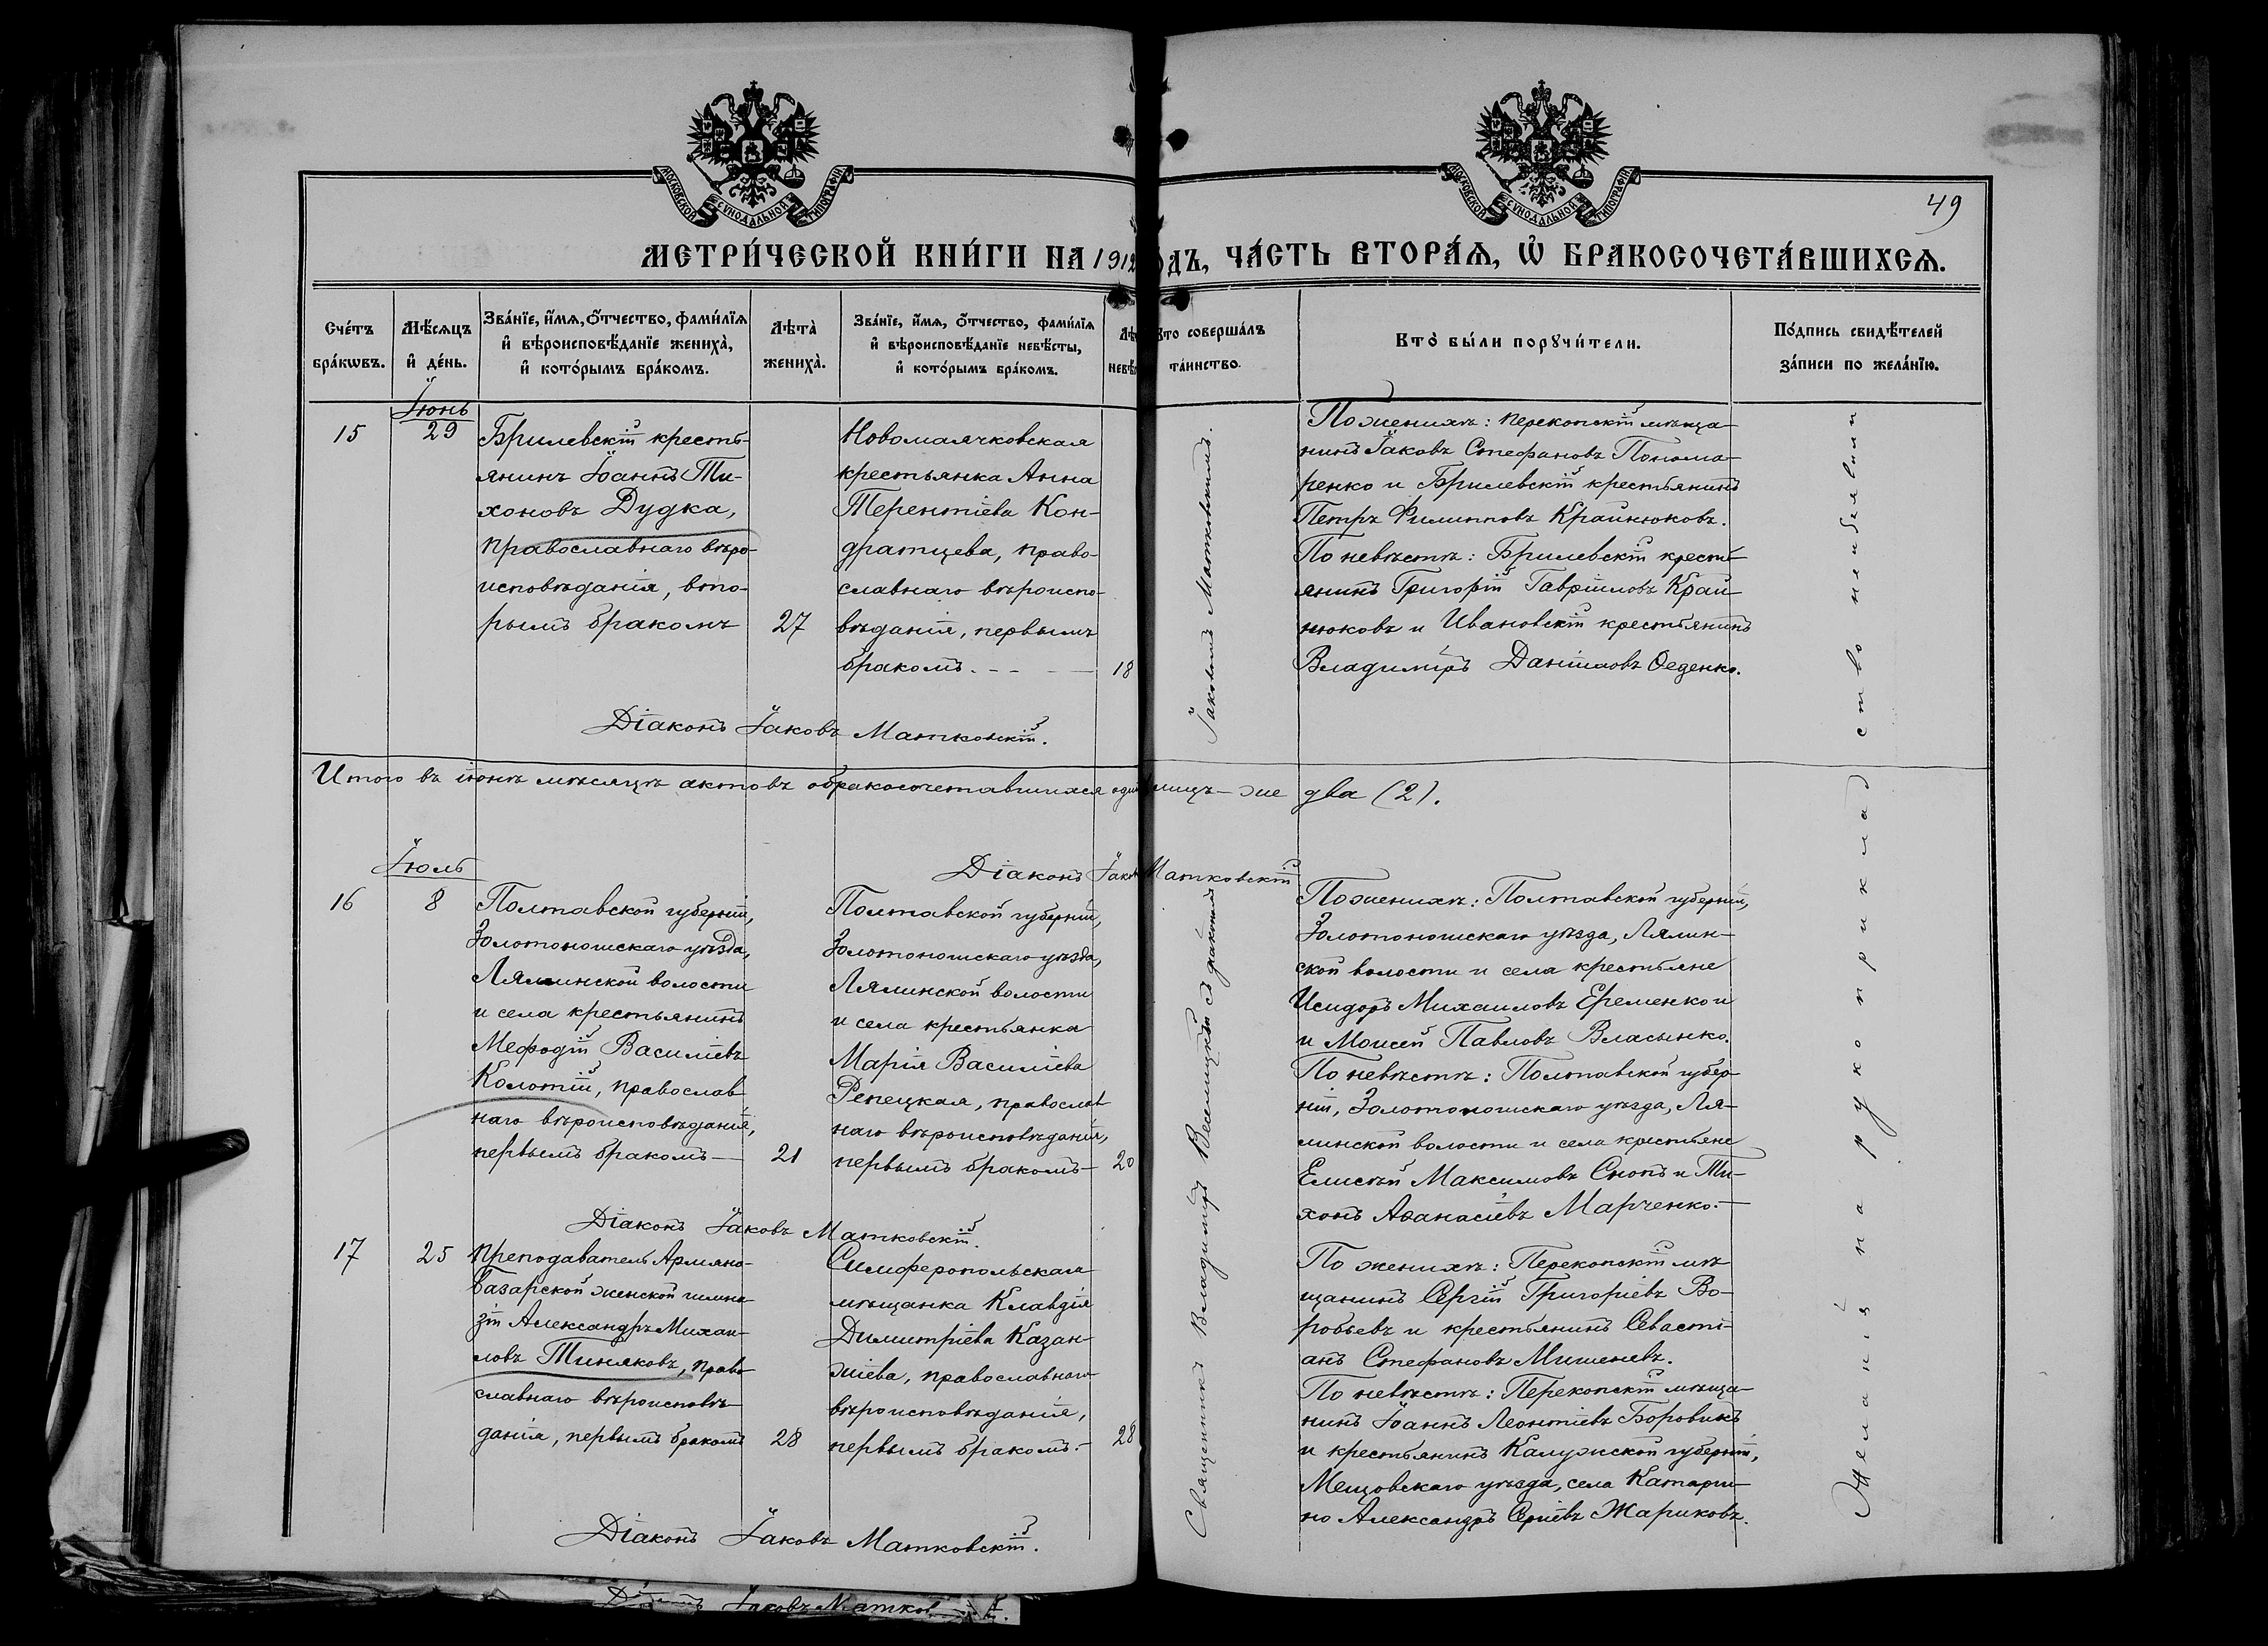 МОСКОВСКОЙ СѴНОДАЛЬНОЙ ТИПОГРАФІИ
МОСКОВСКОЙ СѴНОДАЛЬНОЙ ТИПОГРАФІИ
49
МЕТРИ́ЧЕСКОЙ КНИ́ГИ НА 1912
ОДЪ, ЧА́СТЬ ВТОРА́Ѧ, Ѽ БРАКОСОЧЕТА́ВШИХСѦ.
Сче́тъ
бра́кѡвъ.
Мѣ́сѧцъ
и҆ де́нь.
Зва́нїе, и҆́мѧ, ѻ҆́тчество, фами́лїѧ
и҆ вѣроисповѣ́данїе жениха̀,
и҆ кото́рымъ бра́комъ.
Лѣта̀
жениха̀.
Зва́нїе, и҆́мѧ, ѻ҆́тчество, фами́лїѧ
и҆ вѣроисповѣ́данїе невѣ́сты,
и҆ кото́рымъ бра́комъ.
Лѣ
невѣ
Кто соверша́лъ
та́инство.
Кто̀ бы́ли порꙋчи́тели.
По́дпись свидѣ́телей
за́писи по жела́нїю.
Іюнь
15
29
Брилевскій кресть-
янинъ Іоаннъ Ти-
хоновъ Дудка,
православнаго вѣро-
исповѣданія, вто-
рымъ бракомъ
27
Новомаячковская
крестьянка Анна
Терентіева Кон-
дратцева, право-
славнаго вѣроиспо-
вѣданія, первымъ
бракомъ. - - —
18
По женихѣ: Перекопскій мѣща-
нинъ Іаковъ Стефановъ Понома-
ренко и Брилевскій крестьянинъ
Петръ Филипповъ Крайнюковъ.
По невѣстѣ: Брилевскій кресть-
янинъ Григорій Гавріиловъ Край-
нюковъ и Ивановскій крестьянинъ
Владиміръ Даніиловъ Ѳеденко.
Діаконъ Іаковъ Матковскій.
Итого въ іюнѣ мѣсяцѣ актовъ о бракосочетавшихся один лицъ - же два (2).
Діаконъ Іаков Матковскій
Іюль
16
8
Полтавской губерніи,
Золотоношскаго уѣзда,
Лялинской волости
и села крестьянинъ
Меѳодій Василіевъ
Колотій, православ
наго вѣроисповѣданія,
первымъ бракомъ —
21
Полтавской губерніи,
Золотоношскаго уѣзда,
Лялинской волости
и села крестьянка
Марія Василіева
Репецкая, православ
наго вѣроисповѣданія,
первымъ бракомъ —
20
По женихѣ: Полтавской губерніи,
Золотоношскаго уѣзда, Лялин-
ской волости и села крестьяне
Исидоръ Михаиловъ Еременко и
и Моисей Павловъ Власенко.
По невѣстѣ: Полтавской губер-
ніи, Золотоношскаго уѣзда, Ля-
линской волости и села крестьяне
Елисѣй Максимовъ Снопъ и Ти-
хонъ Аѳанасіевъ Марченко. —
Діаконъ Іаковъ Матковскій.
17
25
Преподаватель Армяно-
базарской женской гимна
зіи Александръ Михаи-
ловъ Тиняковъ, право
славнаго вѣроисповѣ-
данія, первымъ бракомъ
28
Симферопольская
мѣщанка Клавдія
Димитріева Казан-
жіева, православнаго
вѣроисповѣданія,
первымъ бракомъ. -
28
По женихѣ: Перекопскій мѣ
щанинъ Сергій Григоріевъ Во-
робьевъ и крестьянинъ Севасті-
анъ Стефановъ Мишеневъ.
По невѣстѣ: Перекопскій мѣща-
нинъ Іоаннъ Леонтіевъ Боровикъ
и крестьянинъ Калужской губерніи,
Мещовскаго уѣзда, села Катари-
но Александръ Сергіевъ Жариковъ.
Діаконъ Іаковъ Матковскій.
Священникъ Владиміръ Веселицкій съ діакономъ Іаковомъ Матковскимъ.
Желаній на рукоприкладство не изъявили
Іаковъ Матков